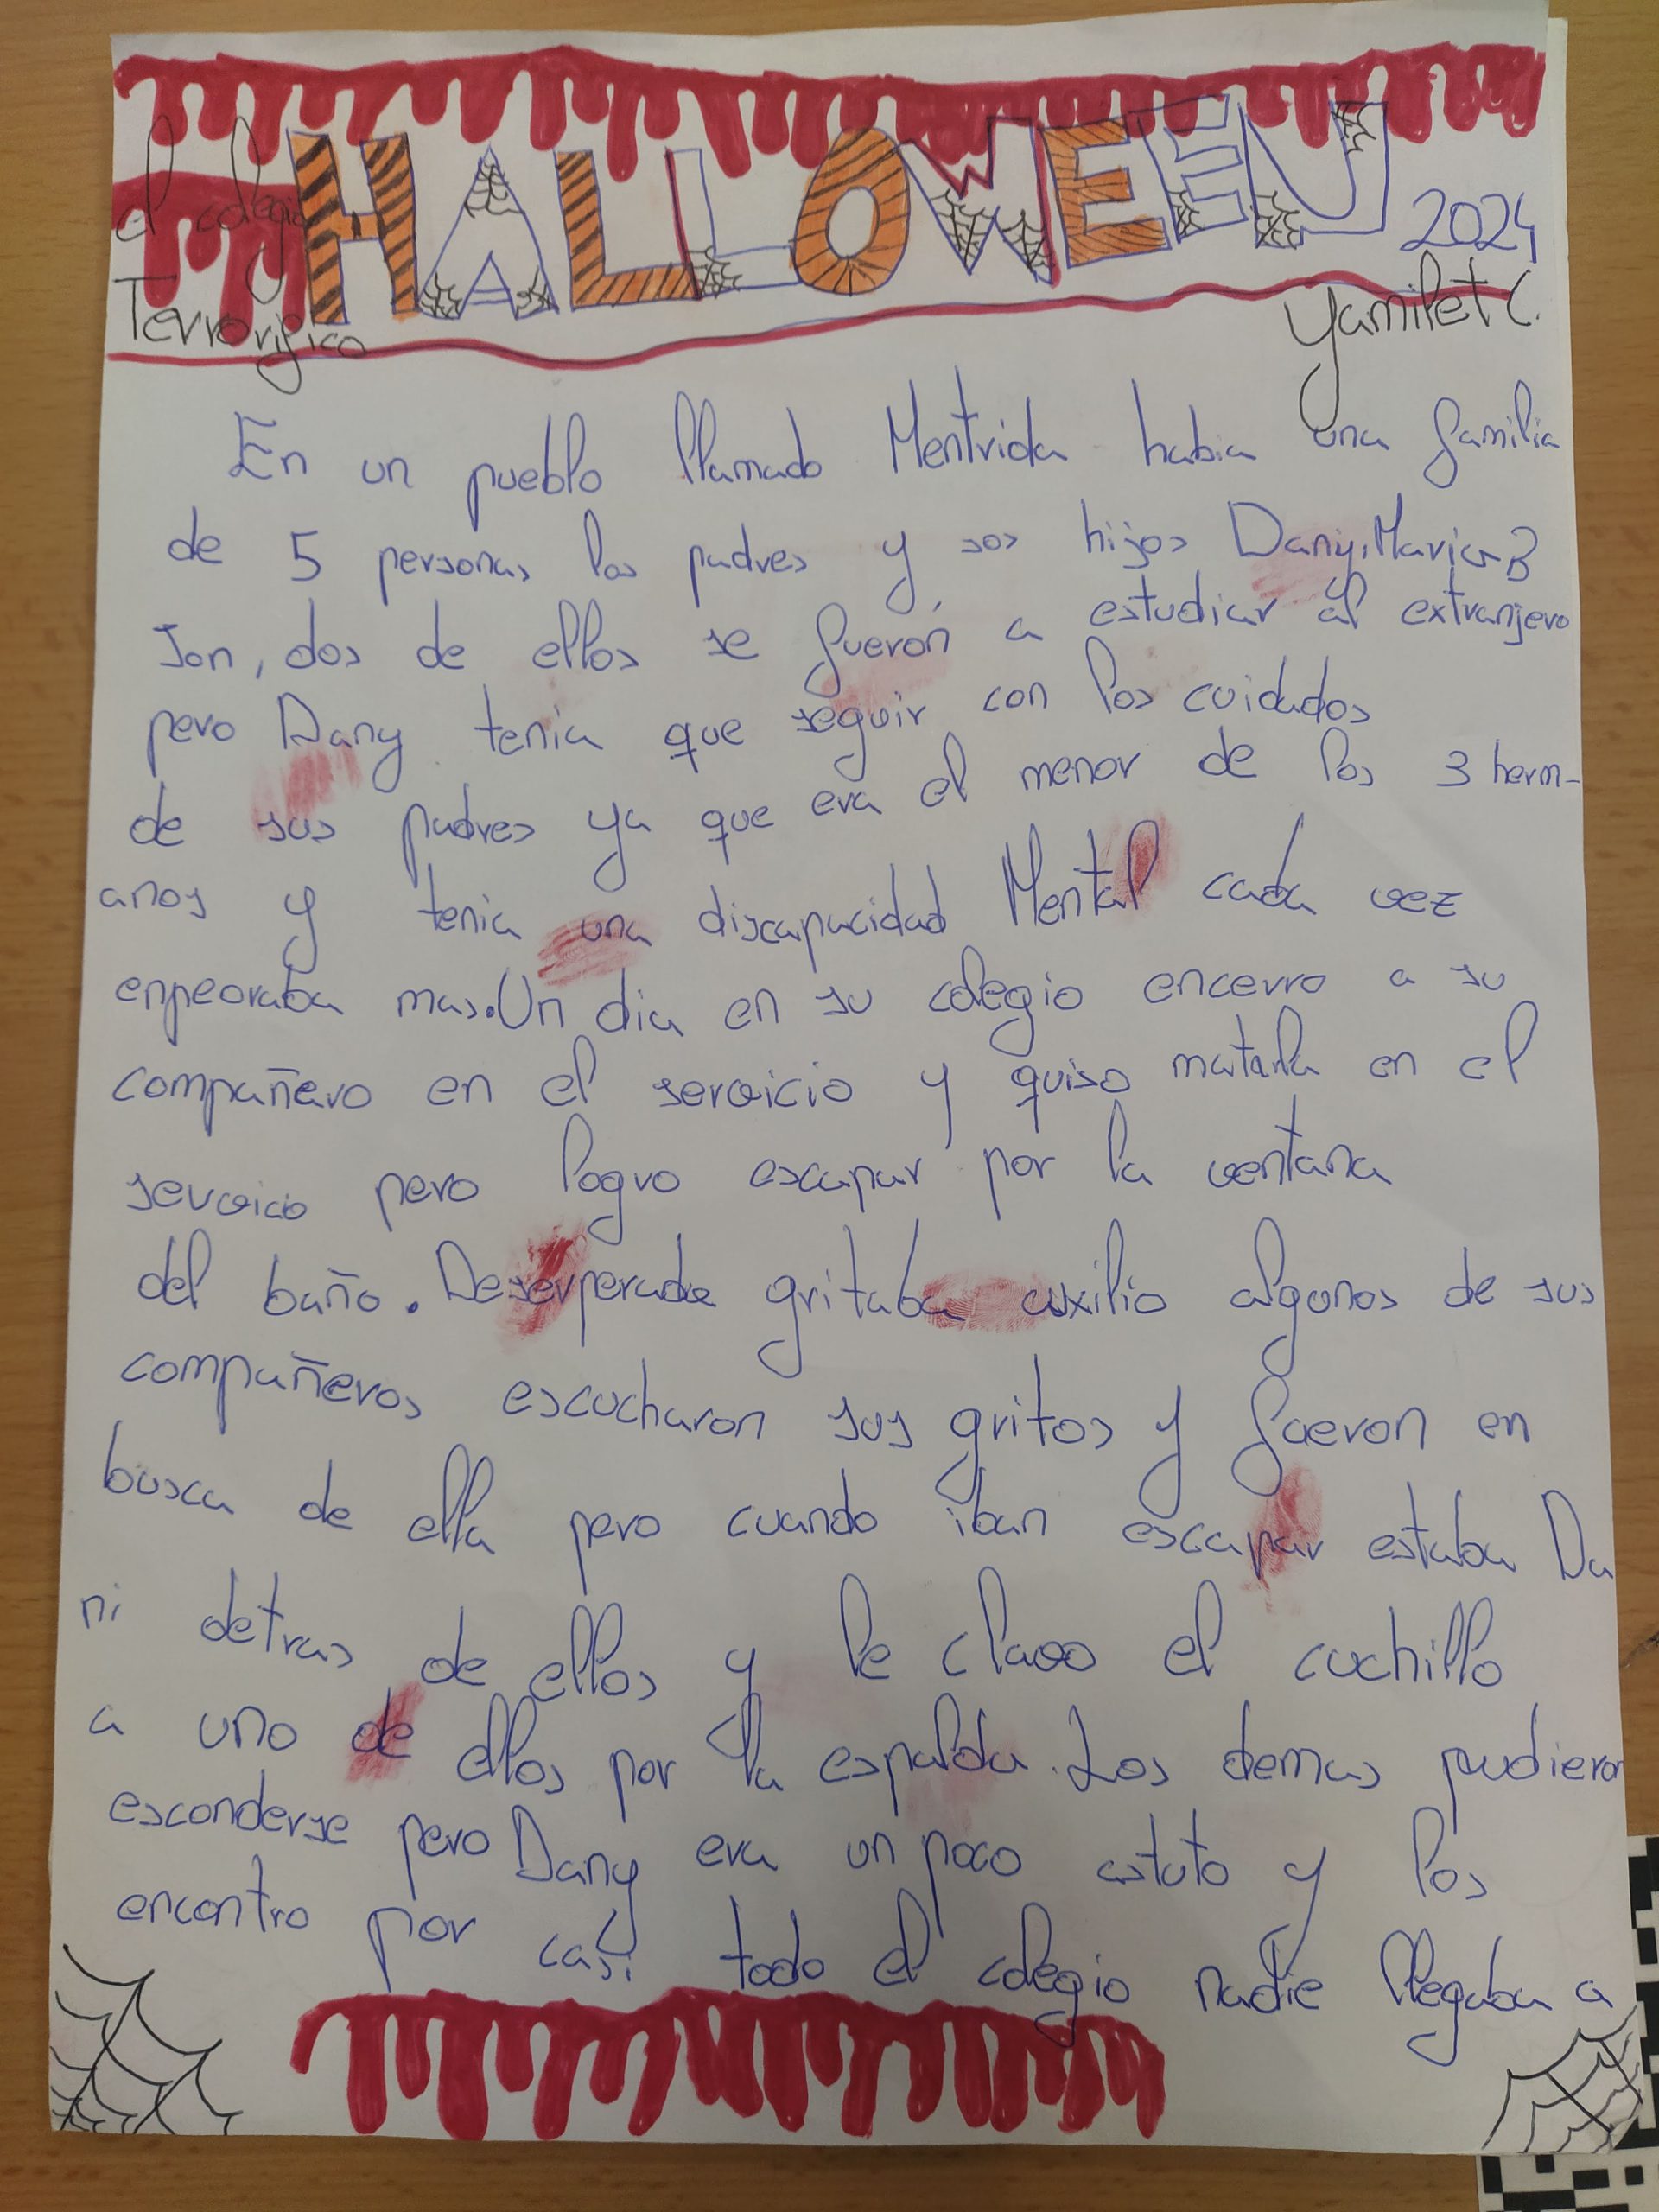 HALLOWEEN 2024
el colegio
Terrorifico
Yamilet C.
En un pueblo llamado Mentrida habia una familia
de 5 personas los padres y sus hijos Dany, Maria y
Jon, dos de ellos se fueron a estudiar al extranjero
pero Dany tenia que seguir con los cuidados
de sus padres ya que era el menor de los 3 herm-
anos y tenia una discapacidad Mental cada vez
enpeoraba mas. Un dia en su colegio encerro a su
compañero en el servicio y quiso matarla en el
servicio pero logro escapar por la ventana
del baño. Deserperada gritaba auxilio algunos de sus
compañeros escucharon sus gritos y fueron en
busca de ella pero cuando iban escapar estaba Da
ni detras de ellos y le clavo el cuchillo
a uno de ellos por la espalda. Los demas pudieron
esconderse pero Dany era un poco astuto y los
encontro por casi todo el colegio nadie llegaba a